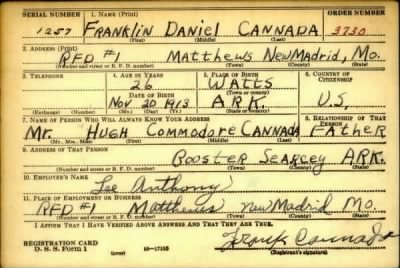 SERIAL NUMBER 1. NAME (Print) ORDER NUMBER
1257 FRANKLIN DANIEL CANNADA 3730
(First) (Middle) (Last)
2. ADDRESS (Print)
RFD #1 MATTHEWS NEW MADRID, MO.
(Number and street or R. F. D. number) (Town) (County) (State)
3. TELEPHONE 4. AGE IN YEARS 5. PLACE OF BIRTH 6. COUNTRY OF CITIZENSHIP
26 WATTS
DATE OF BIRTH (Town or county)
NOV 20 1913 ARK. U.S,
(Exchange) (Number) (Mo.) (Day) (Yr.) (State or country)
7. NAME OF PERSON WHO WILL ALWAYS KNOW YOUR ADDRESS 8. RELATIONSHIP OF THAT PERSON
Mr. HUGH COMMODORE CANNADA FATHER
(Mr., Mrs., Miss) (First) (Middle) (Last)
9. ADDRESS OF THAT PERSON
ROOSTER SEARCEY ARK.
(Number and street or R. F. D. number) (Town) (County) (State)
10. EMPLOYER'S NAME
Lee Anthony
11. PLACE OF EMPLOYMENT OR BUSINESS
RFD #1 Matthews New Madrid Mo.
(Number and street or R. F. D. number) (Town) (County) (State)
I AFFIRM THAT I HAVE VERIFIED ABOVE ANSWERS AND THAT THEY ARE TRUE.
REGISTRATION CARD
D. S. S. Form 1 (over) 16-17105 Frank Cannada
(Registrant's signature)